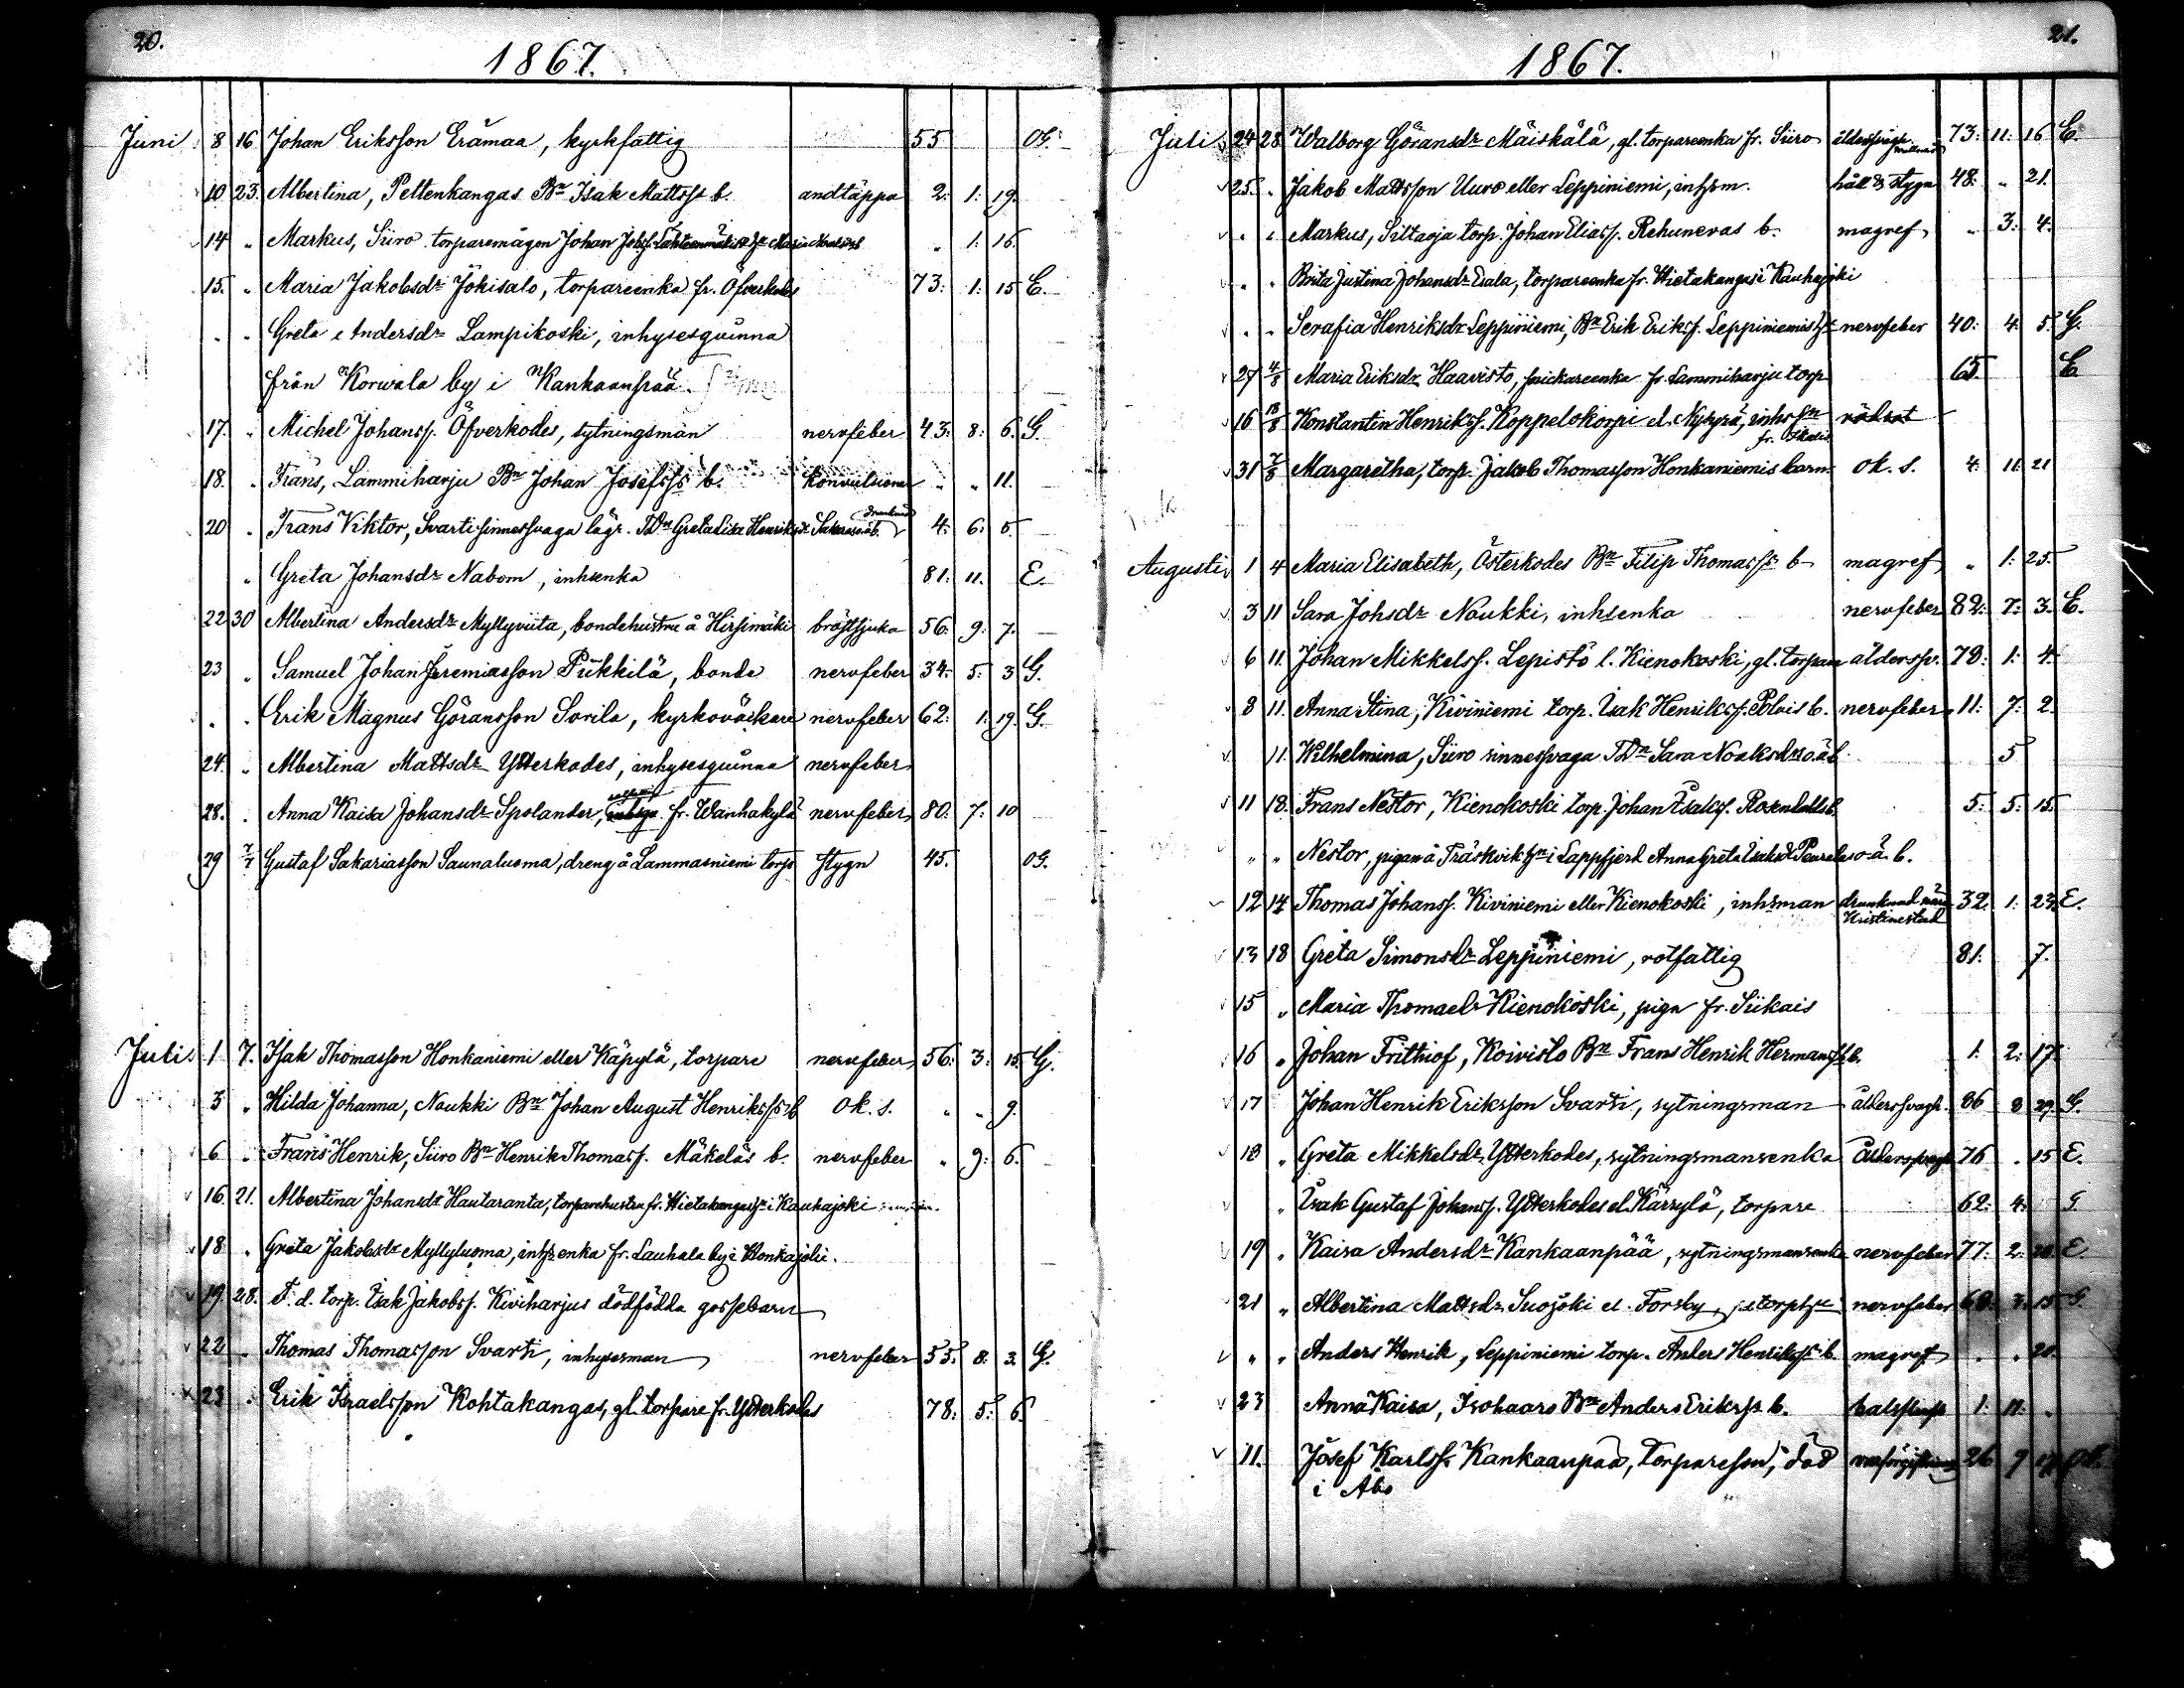 20.
1867.
Juni 8 16 Johan Eriksson Erämaa, kyrkfattig 55 OG.
10 23. Albertina, Peltenkangas Bn Isak Mattss b. andtäppa 2: 1: 19.
14 " Markus, Siiro torparemågen Johan " 1: 16.
15. " Maria Jakobsdr Jokisalo, torpareenka fr. Öfverkodes 73: 1: 15 E.
" " Greta Andersdr Lampikoski, inhysesqvinna
från Korwala by i Kankaanpää.
17. " Michel Johanss. Öfverkodes, sytningsman nervfeber 43: 8: 6. G.
18. " Frans, Lammiharju Bn Johan Josefss b. konvulsioner " " 11.
20 " Frans Viktor, Svarti sinnessvaga lägr. Greta Lisa Henriksdr drunknad 4: 6: 5.
" Greta Johansdr Nabom, inhsenka 81: 11. E.
22 30 Albertina Andersdr Myllyviita, bondehustru å Hirsimäki bröstsjuka 56: 9: 7.
23 " Samuel Johan Jeremiasson Piikkilä, bonde nervfeber 34: 5: 3 G.
" " Erik Magnus Göransson Sorila, kyrkoväckare nervfeber 62: 1: 19. G.
24. " Albertina Mattsdr Ytterkodes, inhysesquinna nervfeber
28. " Anna Kaisa Johansdr Spolander, fr. Wanhakylä nervfeber 80: 7: 10
29 7/7 Gustaf Sakariasson Saunaluoma, dreng å Lammasniemi torp stygn 45. OG.
Juli 1 7. Isak Thomasson Honkaniemi eller Käpylä, torpare nervfeber 56: 3: 15. G.
3 " Hilda Johanna, Naukki Bn Johan August Henrikss b ok. s. " " 9.
6 " Frans Henrik, Siiro Bn Henrik Thomass. Mäkeläs b. nervfeber " 9: 6.
16. 21. Albertina Johansdr Hautaranta, torparehustru fr. Hietakangas i Kauhajoki
18 " Greta Jakobsdr Myllyluoma, inhsenka fr. Lauhala by i Honkajoki.
19. 28. F. d. torp. Isak Jakobss. Kiviharjus dödfödda gossebarn
22 " Thomas Thomasson Svarti, inhysesman nervfeber 55: 8: 3. G.
23 " Erik Israelsson Kohtakangas, gl. torpare fr. Ytterkodes 78: 5: 6.
21.
1867.
Juli 24 28 Walborg Göransdr Mäiskälä, gl. torpareenka fr. Siiro 73: 11: 16 E.
25. " Jakob Mattsson Uuro eller Leppiniemi, inhsm. håll & stygn 48: " 21.
" " Markus, Siltaoja torp. Johan Eliass. Rehunevas b. magref " 3: 4.
" " Brita Justina Johansdr Esala, torpareenka fr. Hietakangas i Kauhajoki
" " Serafia Henriksdr Leppiniemi, Bn Erik Erikss. Leppiniemis nervfeber 40: 4: 5. G.
27 4/8 Maria Eriksdr Haavisto, snickareenka fr. Lammiharju torp 65. E
16 18/8 Konstantin Henrikss. Koppelokorpi el. Nyyrä, inhs rödsot
31 7/8 Margaretha, torp. Jakob Thomasson Honkaniemis barn ok. s. 4: 11: 21
Augusti 1 4 Maria Elisabeth, Österkodes Bn Filip Thomass b magref " 1: 25.
3 11 Sara Johsdr Naukki, inhsenka nervfeber 82: 7: 3. E.
6 11. Johan Mikkelss. Lepistö l. Kienokoski, gl. torpare åldersv. 78: 1: 4.
8 11. Anna Stina, Kiviniemi torp. Isak Henrikss. Polvis b. nervfeber 11: 7: 2.
11. Wilhelmina, Siiro sinnessvaga Sara Noaksdrs o.ä.b. 5
11 18. Frans Nestor, Kienokoski torp. Johan Isakss. Rosendahls b. 5: 5: 15.
" " Nestor, pigan å Träskvik i Lappfjerd Anna Greta Isaksdr o.ä. b.
12 14 Thomas Johanss. Kiviniemi eller Kienokoski, inhsman drunknad nära 32. 1. 23. E.
Kristinestad
13 18 Greta Simonsdr Leppiniemi, rotfattig 81. 7.
15 " Maria Thomasdr Kienokoski, piga fr. Siikais
16 " Johan Frithiof, Koivisto Bn Frans Henrik Hermanss b. 1: 2: 17
17 Johan Henrik Eriksson Svarti, sytningsman ålderssvagh. 86 8 29. G.
18 " Greta Mikkelsdr Ytterkodes, sytningsmansenka 76 " 15 E.
" Isak Gustaf Johanss. Ytterkodes el. Kärrylä, torpare 62: 4: G
19 " Kaisa Andersdr Kankaanpää, sytningsmansenka nervfeber 77: 2: 28. E.
21 " Albertina Mattsdr Suojoki el. Forsby, nervfeber 60: 3: 15 G.
" " Anders Henrik, Leppiniemi torp. Anders Henrikss b. magref " " 21.
23 Anna Kaisa, Isohaaro Bn Anders Erikss b. 1: 11: "
11. Josef Karlss. Kankaanpää, torpareson, död 26 9 17
i Åbo